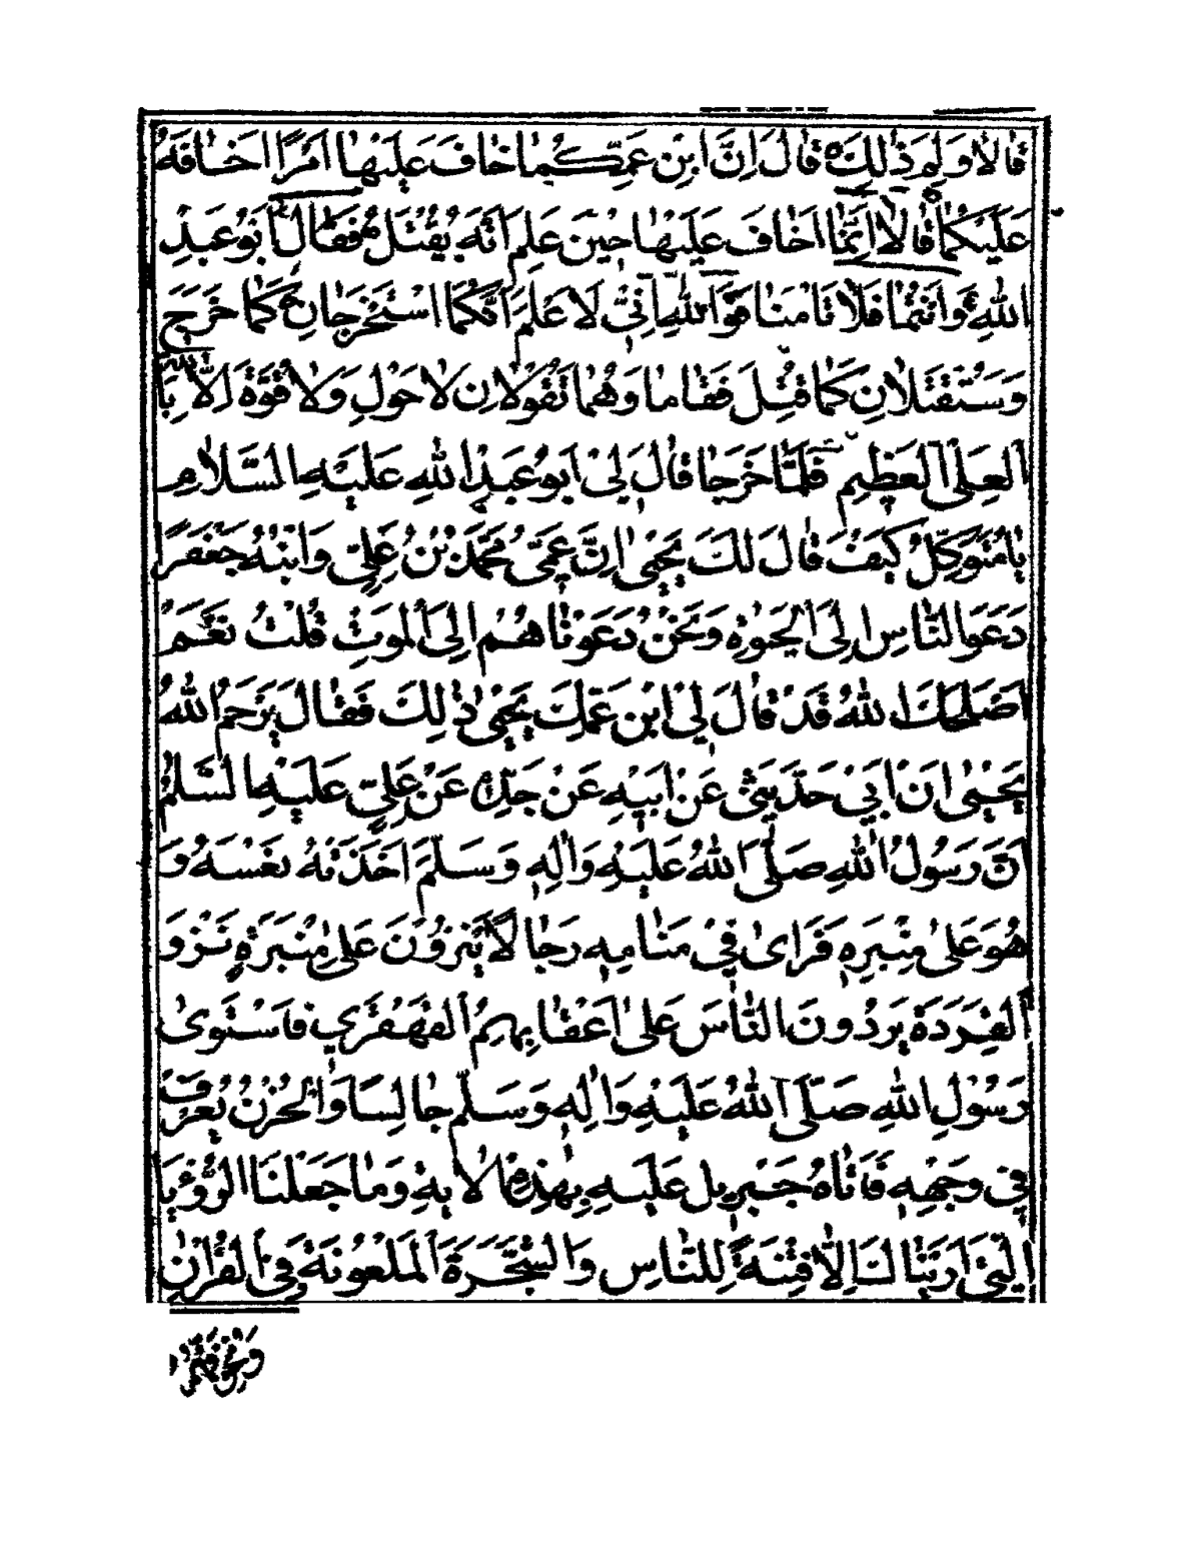 قَالَا وَلِمَ ذٰلِكَ قَالَ اِنَّ ابْنَ عَمِّكُمَا خَافَ عَلَيْهَا اَمْرًا اَخَافَهُ
عَلَيْكُمَا قَالَا اِنَّمَا اَخَافَ عَلَيْهَا حِيْنَ عَلِمَ اَنَّهُ يُقْتَلُ فَقَالَ اَبُو عَبْدِ
اللهِ وَاَنْتُمَا فَلَا تَاْمَنَا فَوَاللهِ اِنِّىْ لَاَعْلَمُ اَنَّكُمَا اسْتَخْرُجَانِ كَمَا خَرَجَ
وَسَتُقْتَلَانِ كَمَا قُتِلَ فَقَامَا وَهُمَا تَقُولَانِ لَاحَوْلَ وَلَا قُوَّةَ اِلَّا بِاللهِ
الْعَلِىِّ الْعَظِيْمِ فَلَمَّا خَرَجَا قَالَ لِىْ اَبُو عَبْدِ اللهِ عَلَيْهِ السَّلَامِ
يَا مُتَوَكِّلُ كَيْفَ قَالَ لَكَ يَحْيٰى اِنَّ عَمِّىْ مُحَمَّدَ بْنَ عَلِىٍّ وَابْنَهُ جَعْفَرًا
دَعَوَا النَّاسَ اِلَى الْحَيٰوةِ وَنَحْنُ دَعَوْنَاهُمْ اِلَى الْمَوْتِ قُلْتُ نَعَمْ
اَصْلَحَكَ اللهُ قَدْ قَالَ لِىْ ابْنُ عَمِّكَ يَحْيٰى ذٰلِكَ فَقَالَ يَرْحَمُ اللهُ
يَحْيٰى اِنَّ اَبِىْ حَدَّثَنِىْ عَنْ اَبِيْهِ عَنْ جَدِّهِ عَنْ عَلِىٍّ عَلَيْهِ السَّلَمُ
اَنَّ رَسُوْلَ اللهِ صَلَّى اللهُ عَلَيْهِ وَاٰلِهِ وَسَلَّمَ اَخَذَتْهُ نَعْسَهُ وَ
هُوَ عَلٰى مِنْبَرِهِ فَرَاٰى فِىْ مَنَامِهِ رِجَالًا يَنْزُوْنَ عَلٰى مِنْبَرِهِ نَزْوَ
الْقِرَدَةِ يَرُدُّونَ النَّاسَ عَلٰى اَعْقَابِهِمُ الْقَهْقَرٰى فَاسْتَوٰى
رَسُوْلُ اللهِ صَلَّى اللهُ عَلَيْهِ وَاٰلِهِ وَسَلَّمَ جَالِسًا وَالْحُزْنُ يُعْرَفُ
فِىْ وَجْهِهِ فَاَتَاهُ جَبْرِيل عَلَيْهِ بِهٰذِهِ الْاٰيَةِ وَمَا جَعَلْنَا الرُّؤْيَا
الَّتِىْ اَرَيْنَاكَ اِلَّا فِتْنَةً لِلنَّاسِ وَالشَّجَرَةَ الْمَلْعُوْنَةَ فِى الْقُرْاٰنِ
وَنُخَوِّفُهُمْ